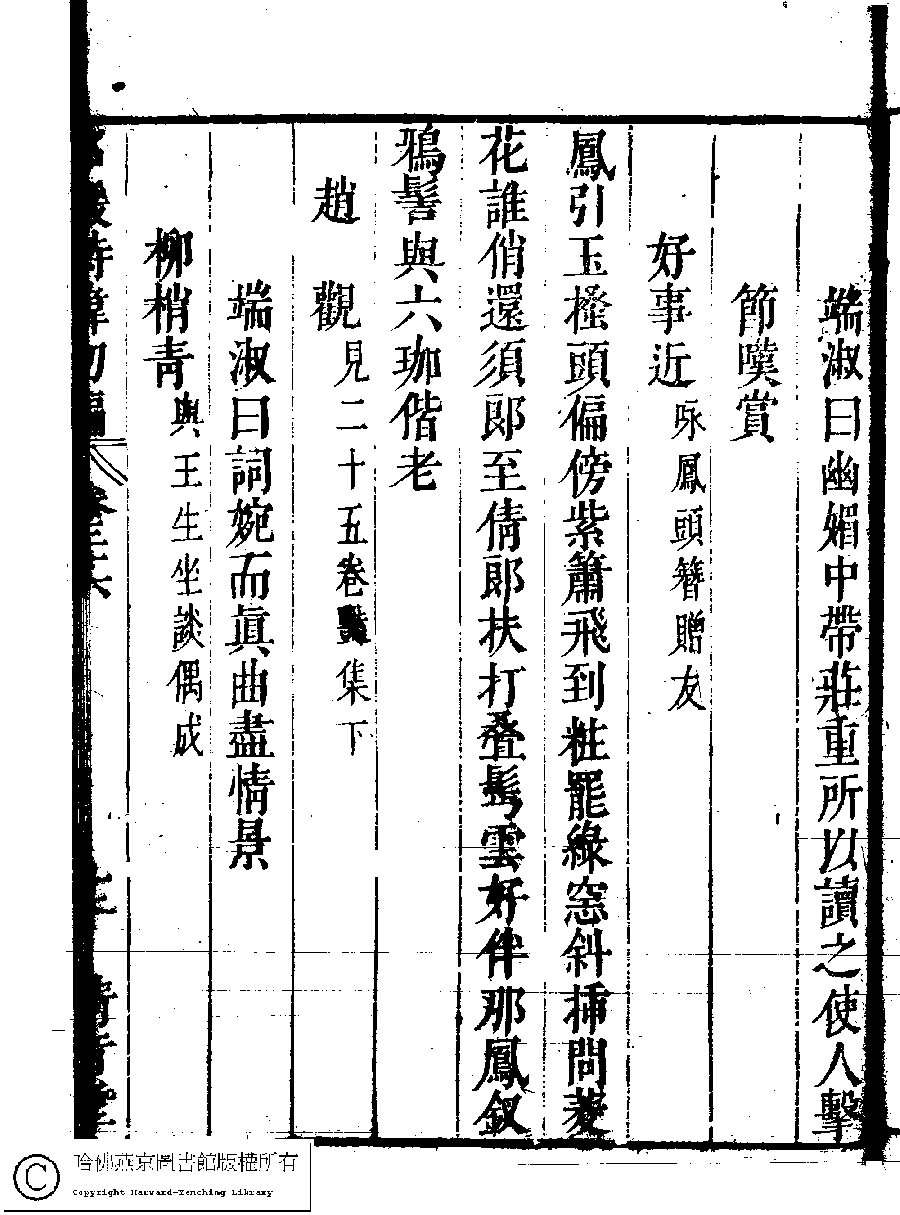 端淑曰幽媚中帶莊重所以讀之使人擊
節嘆賞
好事近 咏鳳頭簪贈友
鳳引玉搔頭偏傍紫簫飛到粧罷綠窓斜揷問菱
花誰俏還須郎至倩郎扶打叠髩雲好伴那鳳釵
鴉髻與六珈偕老
趙 觀 見二十五卷豔集下
端淑曰詞婉而眞曲盡情景
柳梢青 與王生坐談偶成
名媛詩緯初編 卷三十六 清音堂
哈佛燕京圖書館版權所有
Copyright Harvard-Yenching Library